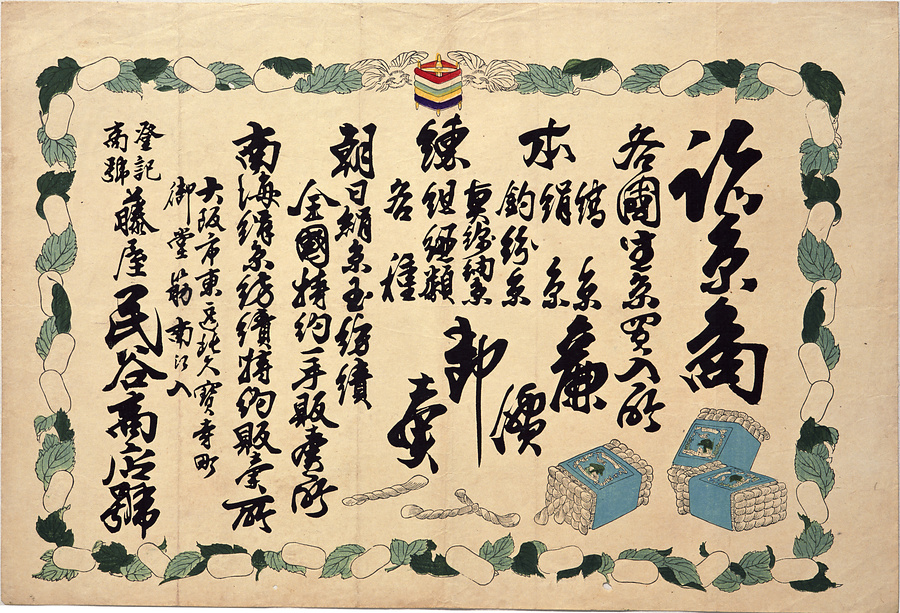 諸糸商
各國生糸買入所
本絹糸
縞糸
釣紛糸
廉價
練
真綿
組紐類
各種
卸賣
朝日絹糸玉紡績
全國特約一手販賣所
南海絹糸紡績特約販売所
大阪市東区北久寶寺町
御堂筋南江入
登記商號
藤屋民谷商店號